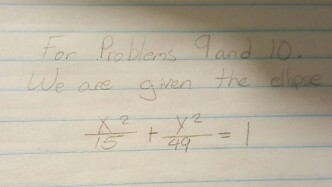 For Problems 9 and 10.
We are given the ellipse
x²/15 + y²/49 = 1